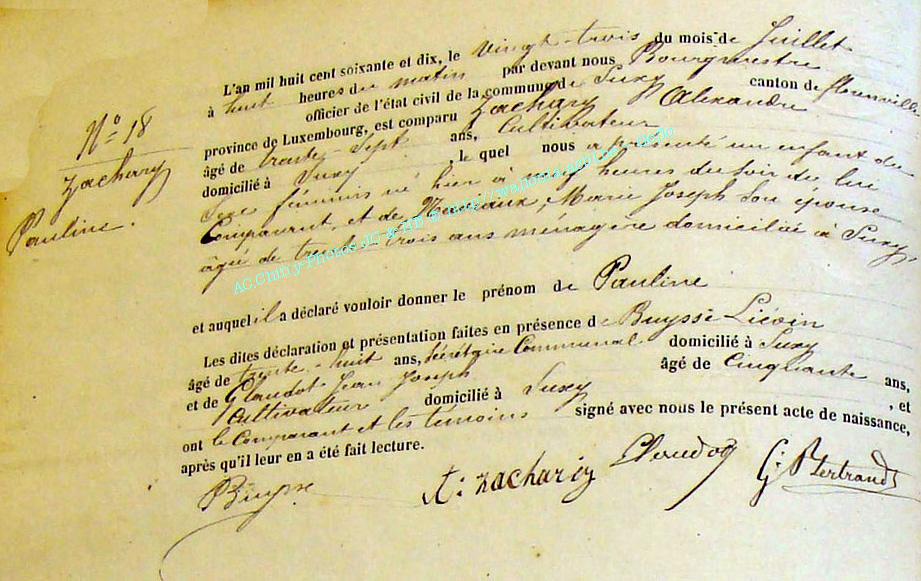 N° 18
Zachary
Pauline.
L'an mil huit cent soixante et dix, le vingt-trois du mois de Juillet
à huit heures du matin par devant nous Bourgmestre
officier de l'état civil de la commune de Suxy canton de florenville
province de Luxembourg, est comparu Zachary Alexandre
âgé de trente-Sept ans, Cultivateur
domicilié à Suxy, le quel nous a présenté un enfant du
Sexe féminin né hier à heures du Soir de lui
Comparant, et de Marie Joseph Son épouse
âgée de trente-trois ans ménagère domiciliée à Suxy,
et auquel il a déclaré vouloir donner le prénom de Pauline
Les dites déclaration et présentation faites en présence de Buysse Liévin
âgé de trente-huit ans, Sécrétaire Communal domicilié à Suxy
et de Glaudot Jean Joseph âgé de Cinquante ans,
Cultivateur domicilié à Suxy, et
ont le Comparant et les témoins signé avec nous le présent acte de naissance,
après qu'il leur en a été fait lecture.
Buysse A: Zachariy Gloudot G: Bertrand
AC.Chiny-Photos JG & HB @ http://